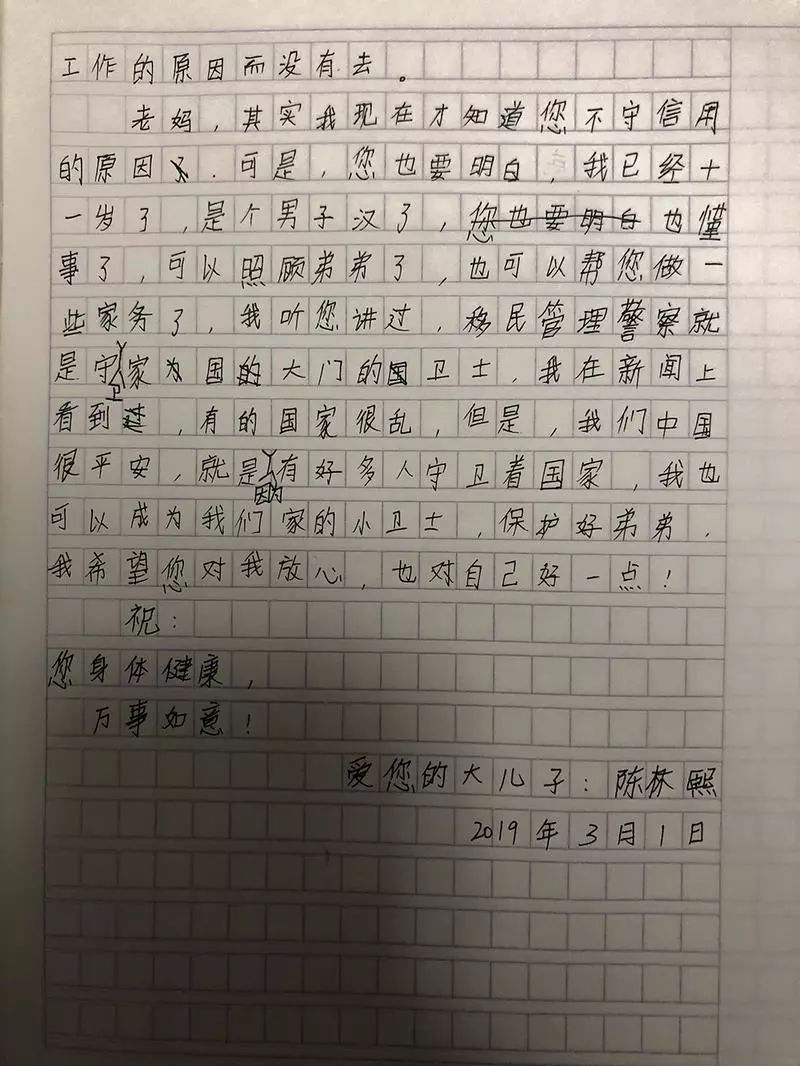 工作的原因而没有去。
老妈，其实我现在才知道您不守信用
的原因，可是，您也要明白，我已经十
一岁了，是个男子汉了，您也要明白也懂
事了，可以照顾弟弟了，也可以帮您做一
些家务了，我听您讲过，移民管理警察就
是守卫家为国的大门的国卫士，我在新闻上
看到过，有的国家很乱，但是，我们中国
很平安，就是因为有好多人守卫着国家，我也
可以成为我们家的小卫士，保护好弟弟．
我希望您对我放心，也对自己好一点！
祝：
您身体健康，
万事如意！
爱您的大儿子：陈林熙
2019年3月1日